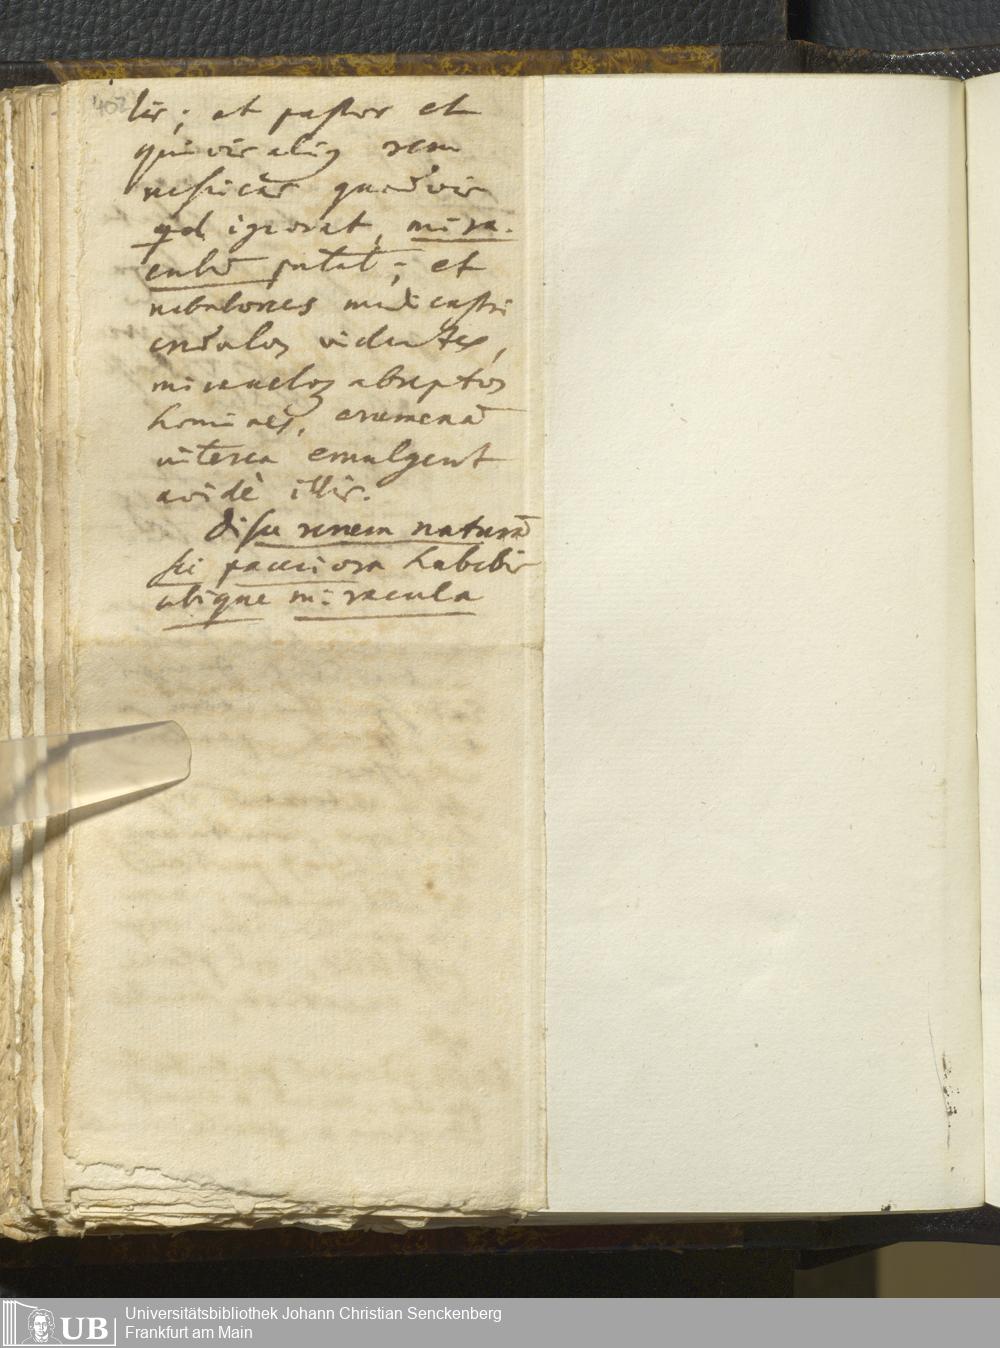 402
lis; et pastor et
quivis aliq rem
nesciens quāvis
qd ignorat, mira-
culū putat; et
nebulones medicastri
credulos videntes,
miraculoq abreptos
homines, crumenā
interea emulgent
avidè illis.
Disce rerum naturā
sic pauciora habebis
ubique miracula
UB Universitätsbibliothek Johann Christian Senckenberg
Frankfurt am Main